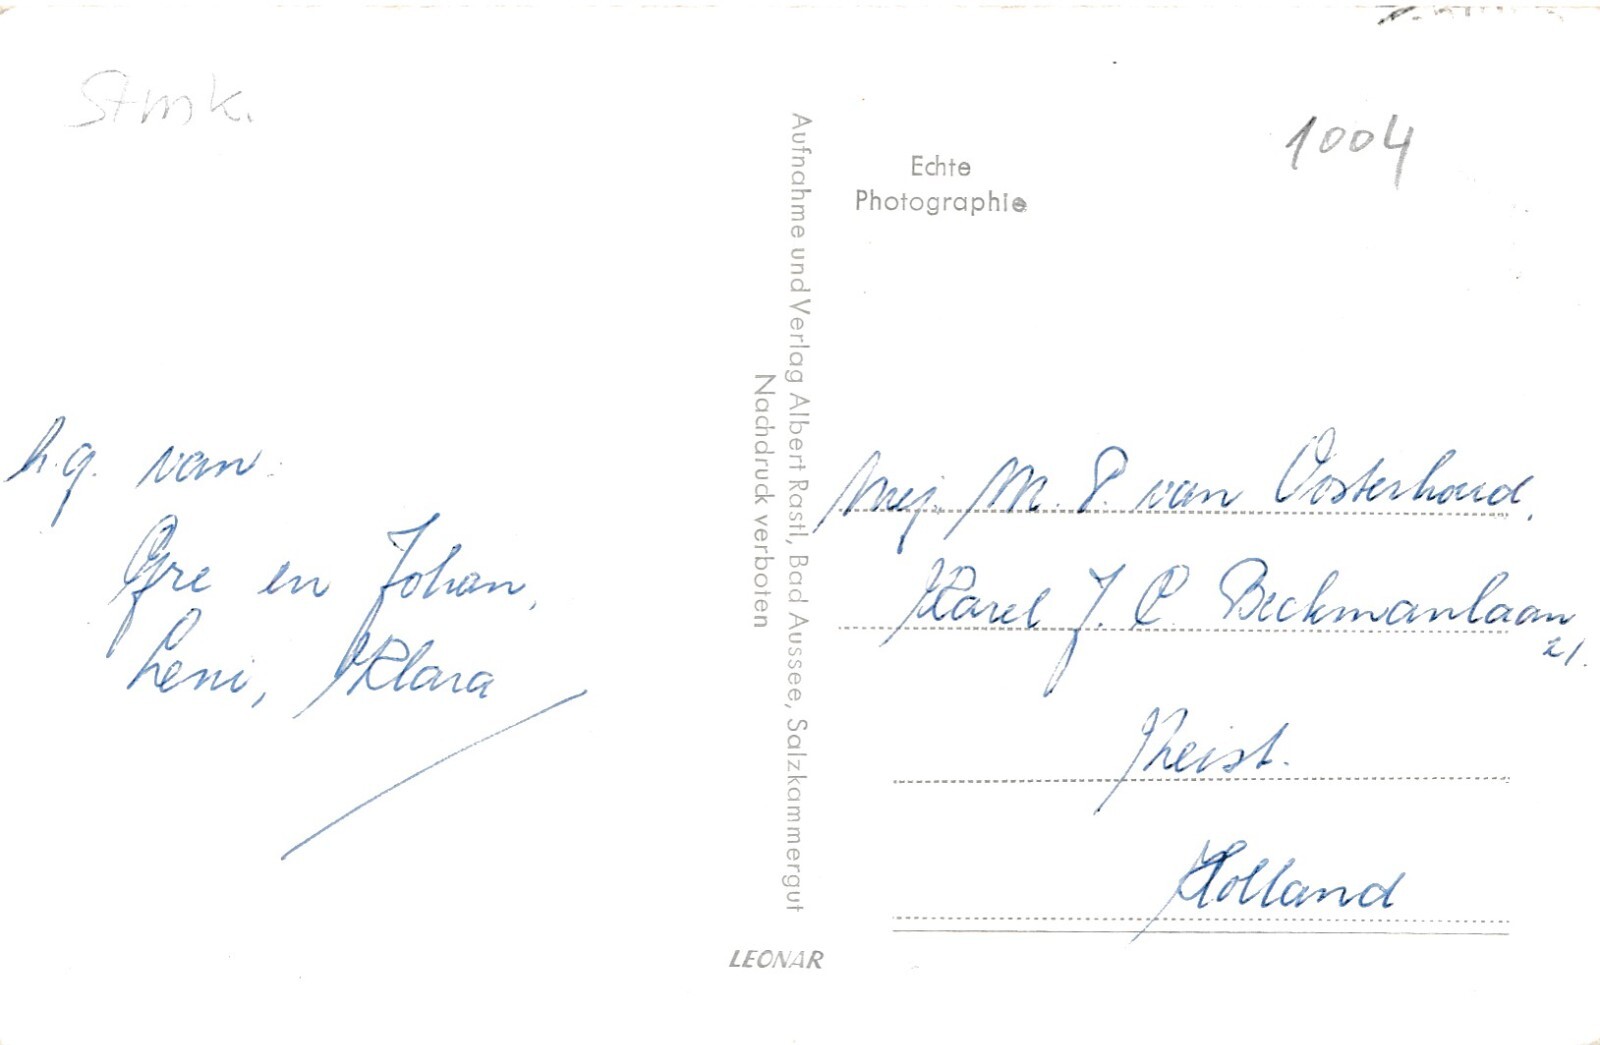 Stmk.
h.g. van:
Gre en Johan,
Leni, Klara
Aufnahme und Verlag Albert Rastl, Bad Aussee, Salzkammergut
Nachdruck verboten
LEONAR
Echte
Photographie
1004
Mej. M. P. van Oosterhoud,
Karel J. C. Beckmanlaan
21.
Zeist.
Holland